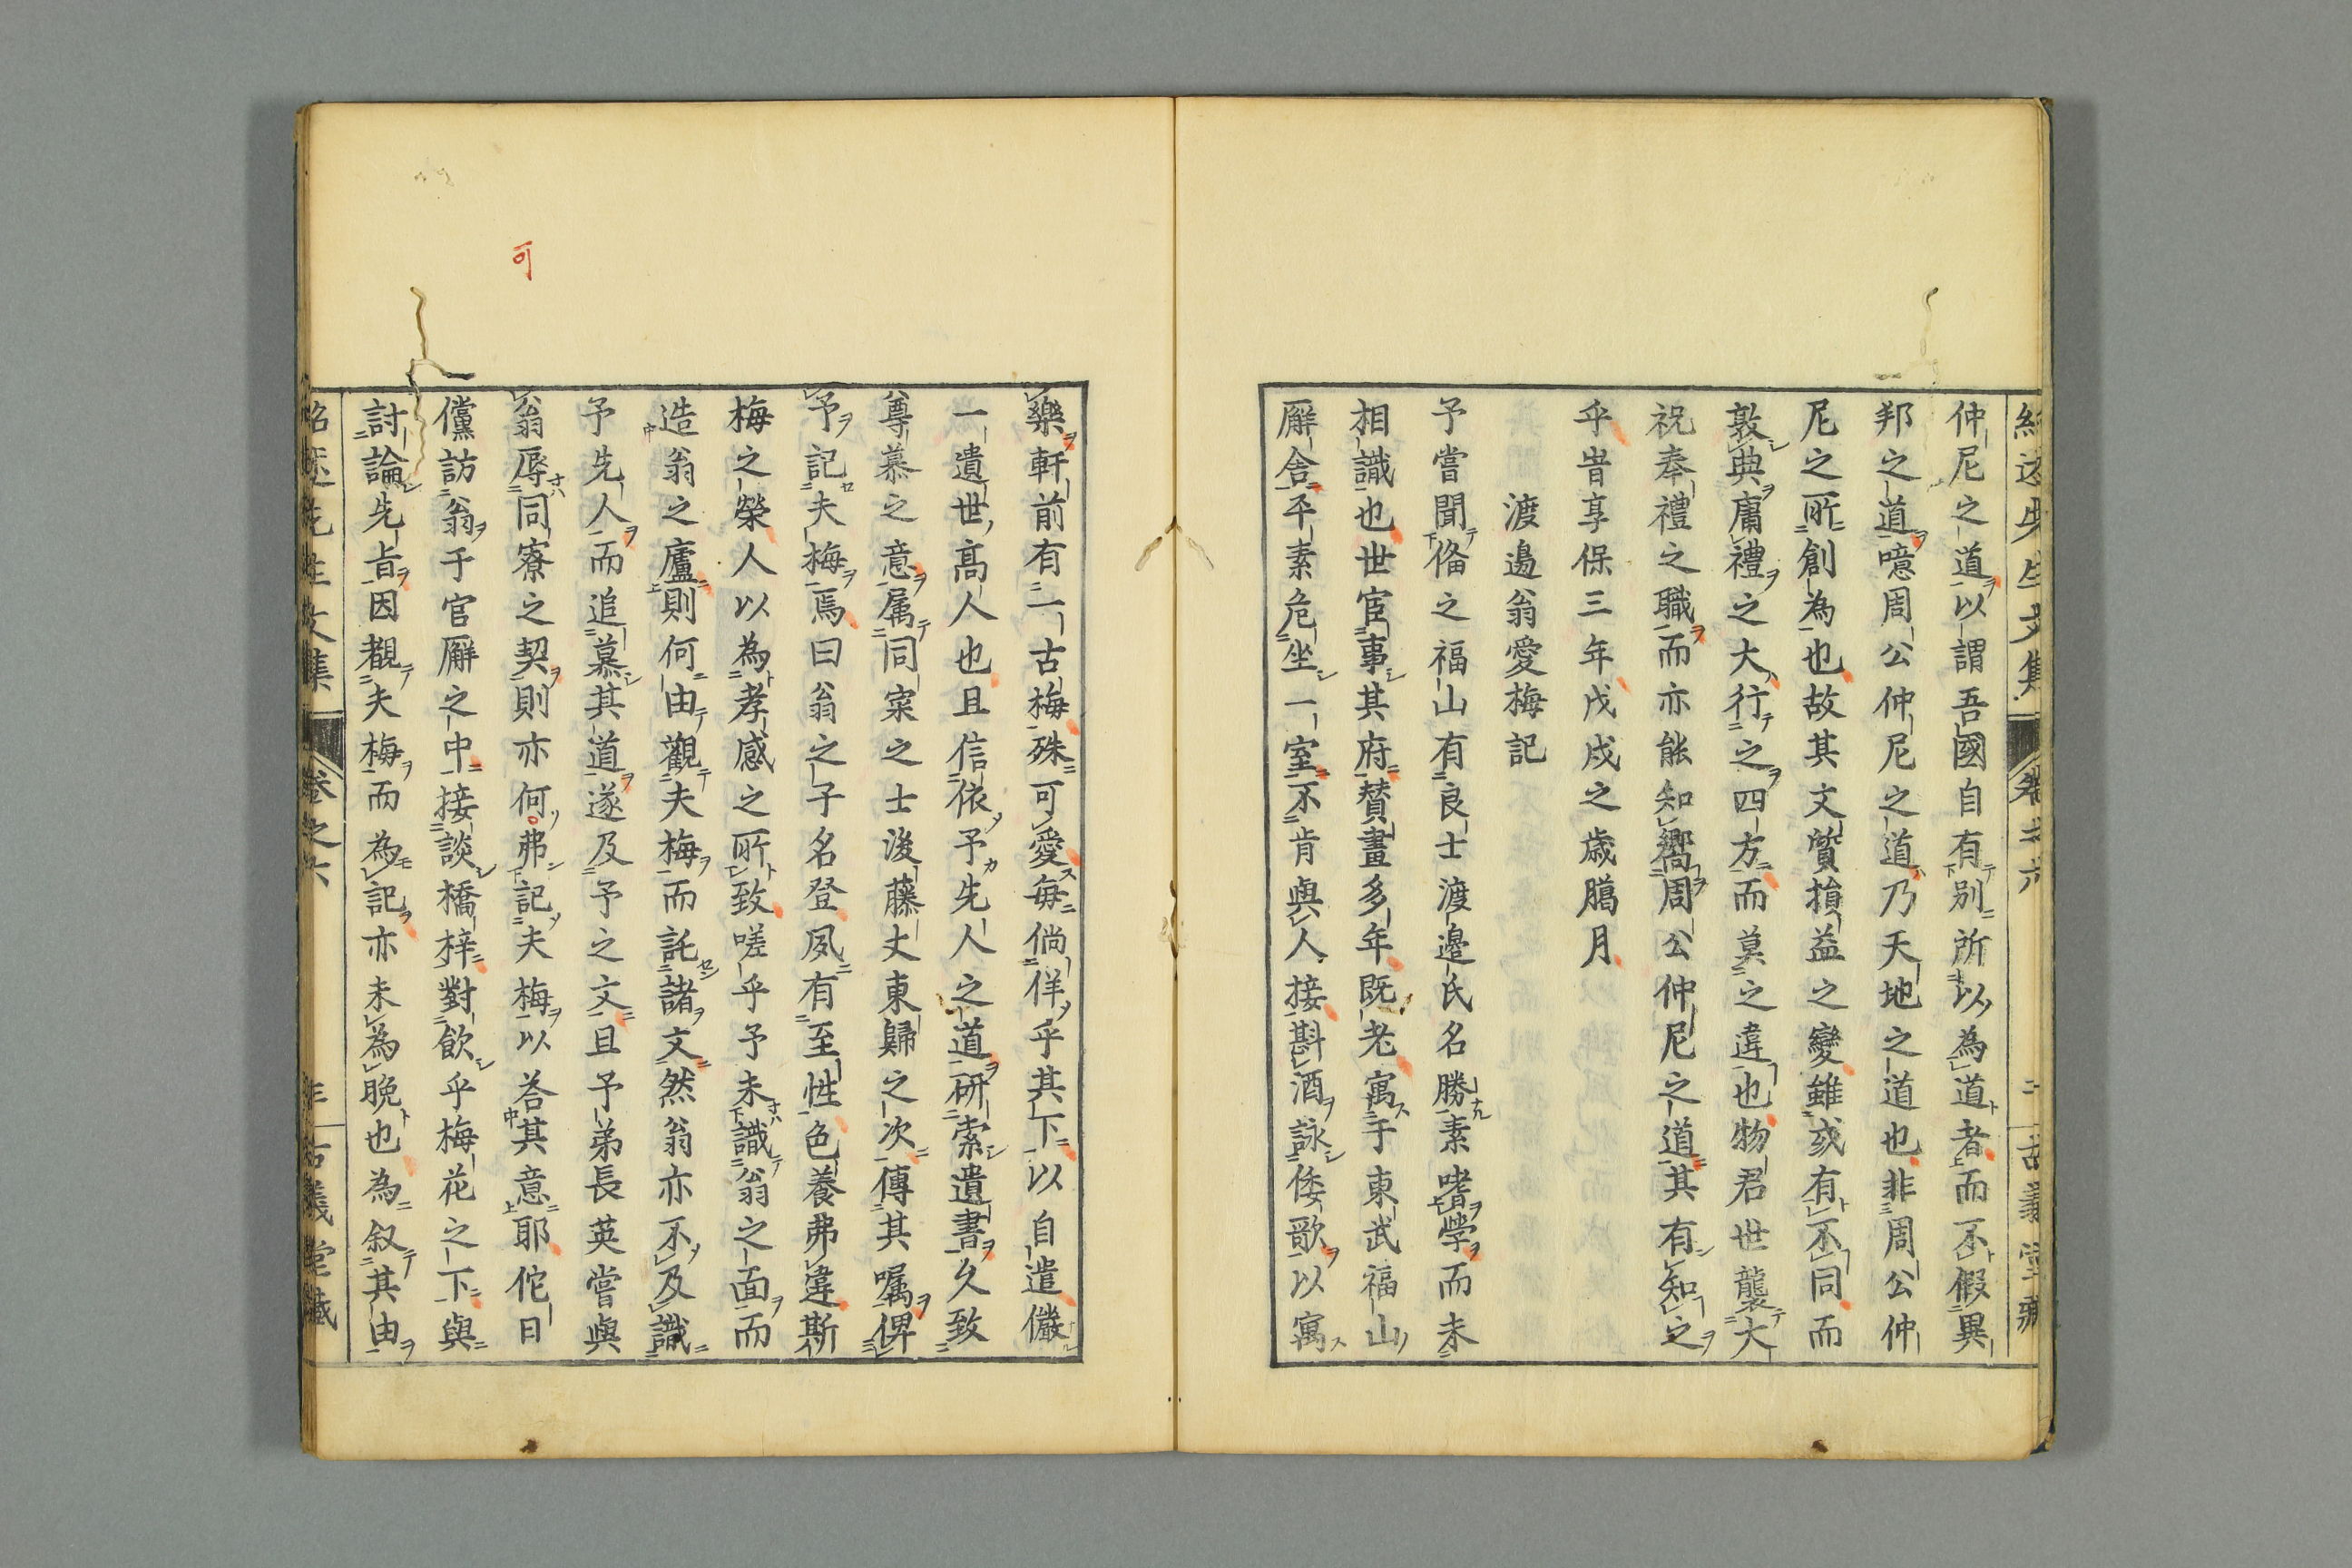 仲尼之道以謂吾國自有別所以為道者而不假異
邦之道噫周公仲尼之道乃天地之道也非周公仲
尼之所創為也故其文質損益之變雖或有不同而
敦典庸禮之大行之四方而莫之違也物君世襲大
祝奉禮之職而亦能知嚮周公仲尼之道其有知之
乎旹享保三年戊戌之歳臈月
渡邉翁愛梅記
予嘗聞俻之福山有良士渡邉氏名勝素嗜學而未
相識也世宦事其府賛畫多年既老寓于東武福山
廨舎平素危坐一室不肯與人接斟酒詠倭歌以寓
樂軒前有一古梅殊可愛毎倘佯乎其下以自遣儼
一遺世高人也且信依予先人之道研索遺書久致
尊慕之意属同寀之士後藤丈東歸之次傳其囑俾
予記夫梅焉曰翁之子名登夙有至性色養弗違斯
梅之榮人以為孝感之所致嗟乎予未識翁之面而
造翁之廬則何由觀夫梅而託諸文然翁亦不及識
予先人而追慕其道遂及予之文且予弟長英嘗與
翁辱同寮之契則亦何弗記夫梅以荅其意耶佗日
儻訪翁于官廨之中接談橋梓對飲乎梅花之下與
討論先旨因覩夫梅而為記亦未為晩也為叙其由
紹述先生文集 卷之六 古義堂藏